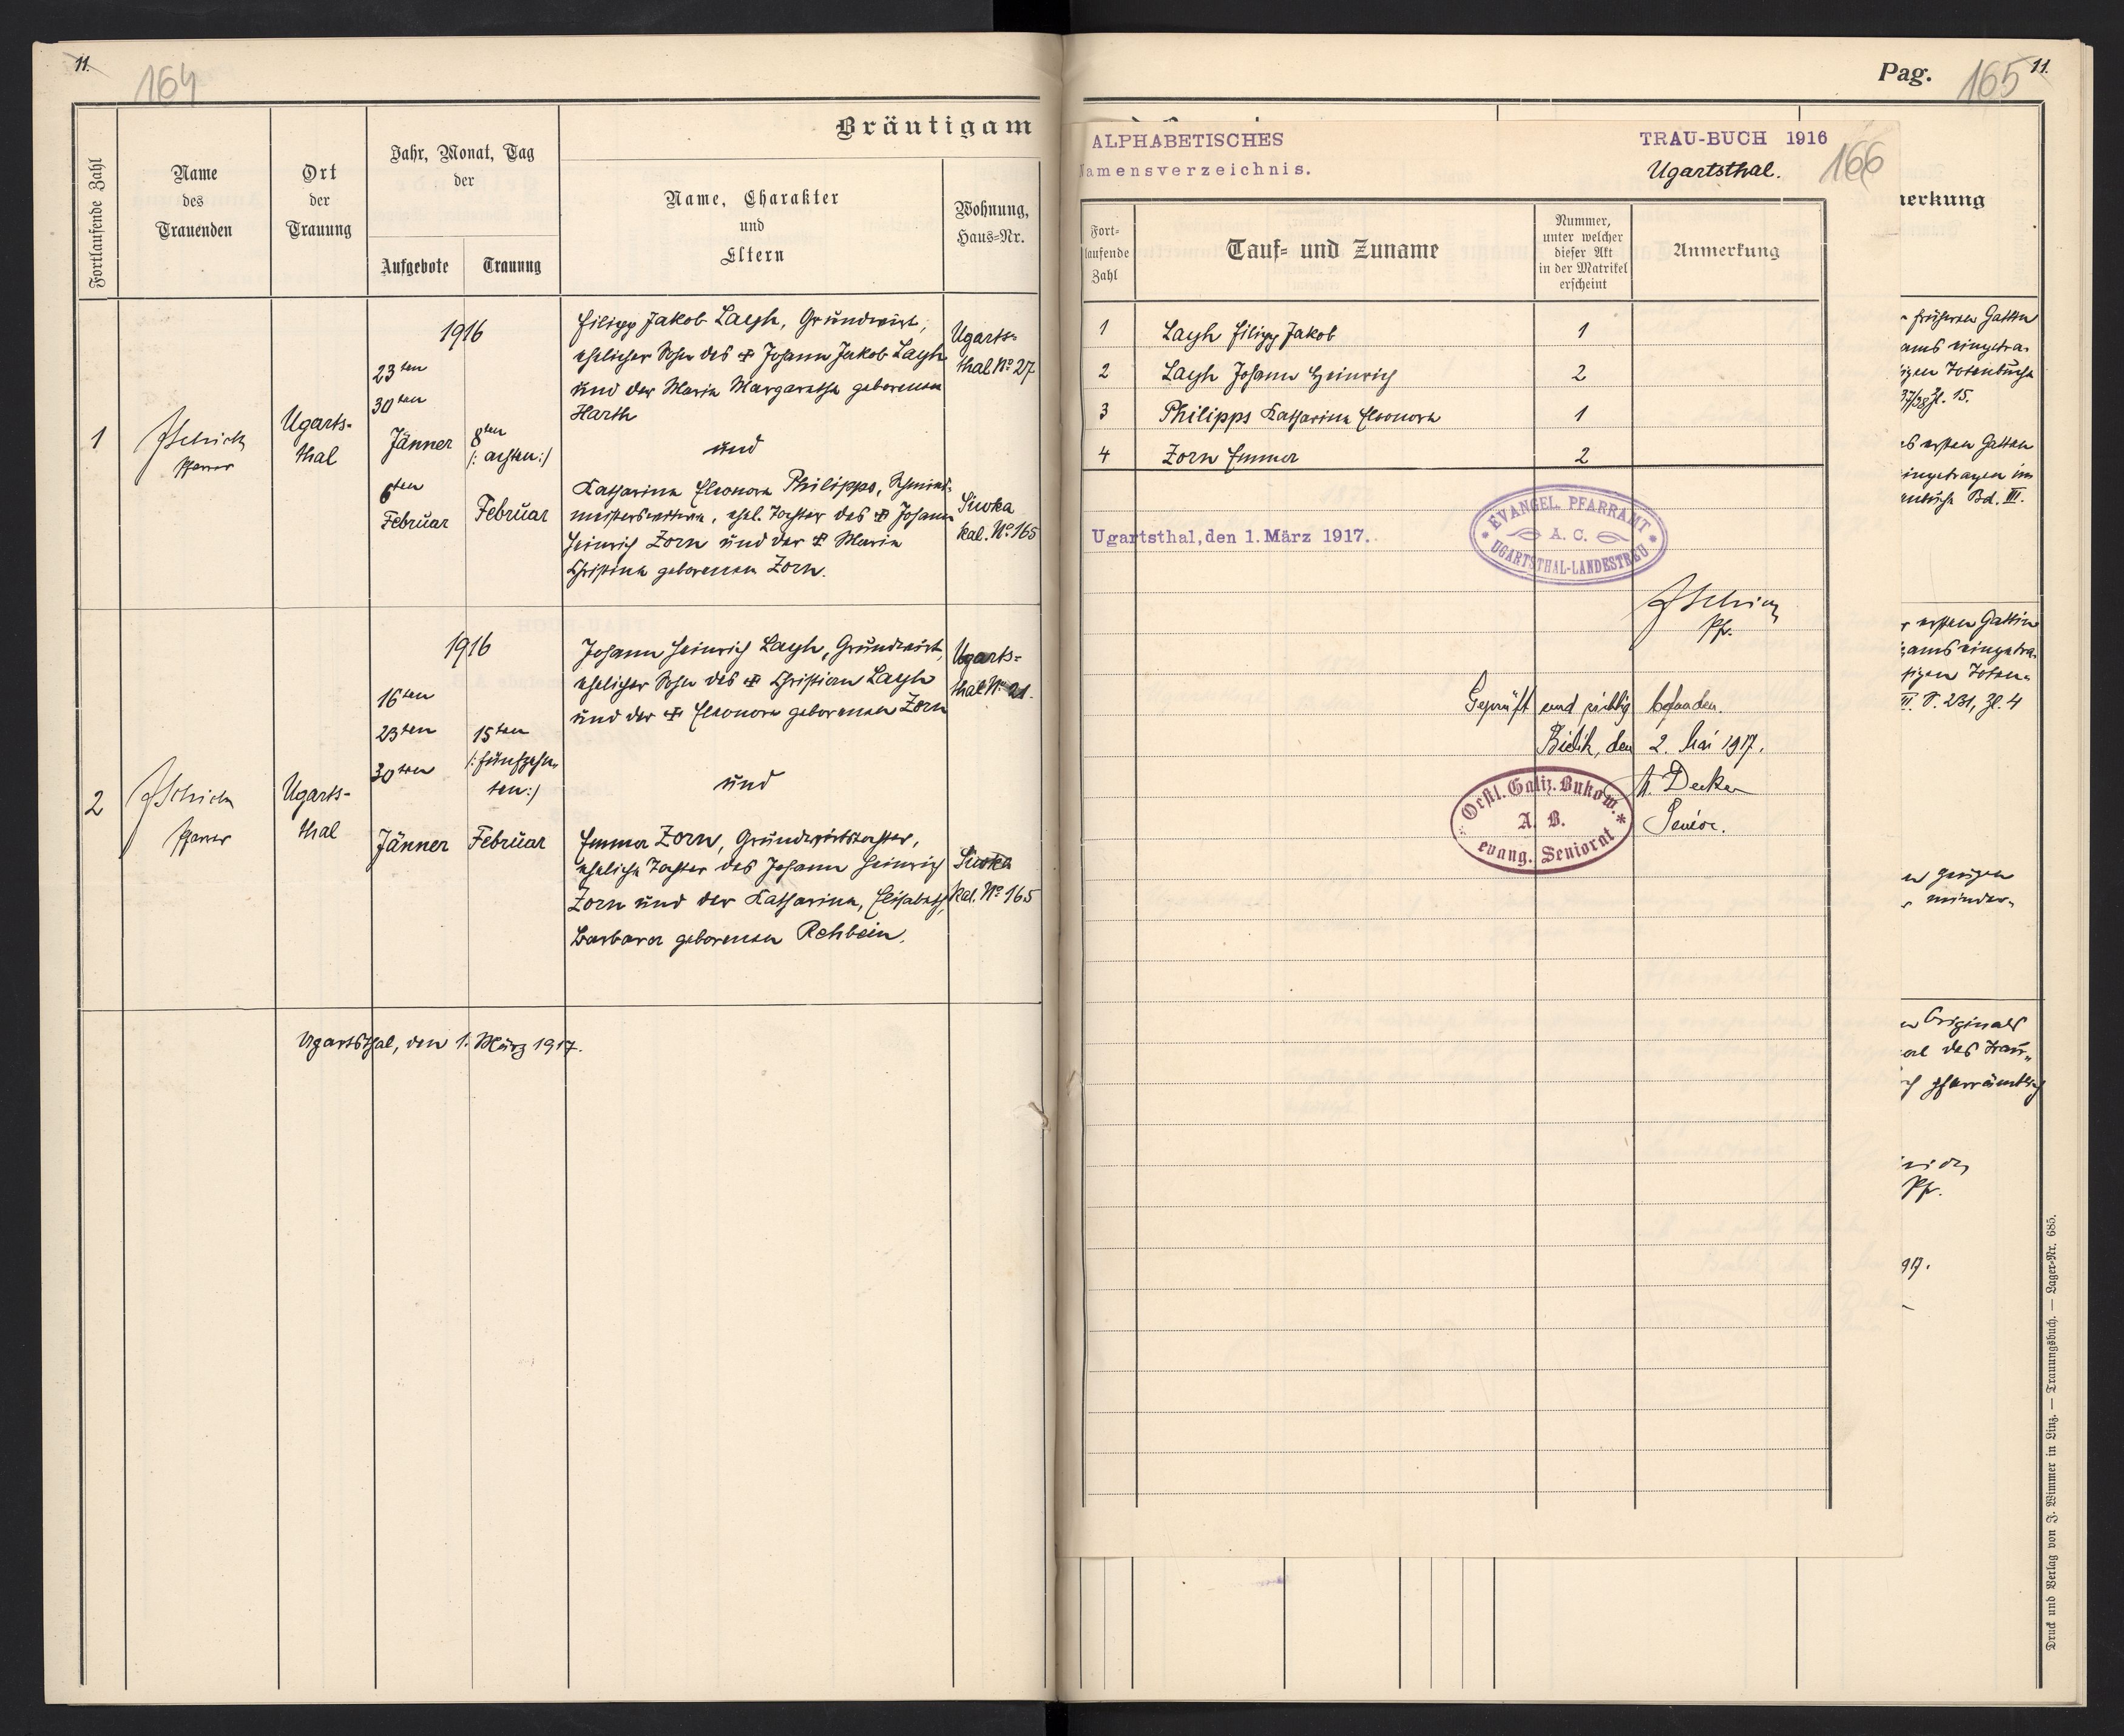 11.
164
Bräutigam
Fortlaufende Zahl
Name
des
Trauenden
Ort
der
Trauung
Jahr, Monat, Tag
der
Aufgebote
Trauung
Name, Charakter
und
Eltern
Wohnung,
Haus=Nr.
1
Pfarrer
Ugarts-
thal
1916
23ten
30ten
Jänner
6ten
Februar
8ten
/: achten :/
Februar
Filipp Jakob Layh, Grundwirt,
ehelicher Sohn des ✠ Johann Jakob Layh
und der Maria Margaretha geborenen
Harth
und
Katharina Eleonora Philipps, Schmied-
meisterswitwe, ehel. Tochter des ✠ Johann
Heinrich Zorn und der ✠ Maria
Christina geborenen Zorn.
Ugarts-
thal No 27
Siwka
kal. No 165
2
Pfarrer
Ugarts-
thal
1916
16ten
23ten
30ten
Jänner
15ten
/: fünfzehn-
ten :/
Februar
Johann Heinrich Layh, Grundwirt,
ehelicher Sohn des ✠ Christian Layh
und der ✠ Eleonora geborenen Zorn
und
Emma Zorn, Grundwirtstochter,
eheliche Tochter des Johann Heinrich
Zorn und der Katharina, Elisabeth,
Barbara geborenen Rehbein.
Ugarts=
thal No 21.
Siwka
kal. No 165
Ugartsthal, den 1. März 1917.
Pag. 165 11.
ALPHABETISCHES
Namensverzeichnis.
TRAU-BUCH 1916
Ugartsthal.
166
Fort=
laufende
Zahl
Tauf= und Zuname
Nummer,
unter welcher
dieser Akt
in der Matrikel
erscheint
Anmerkung
1 Layh Filipp Jakob 1
2 Layh Johann Heinrich 2
3 Philipps Katharina Eleonora 1
4 Zorn Emma 2
Ugartsthal, den 1. März 1917.
EVANGEL. PFARRAMT
A. C.
UGARTSTHAL-LANDESTREU
Pfr.
Geprüft und richtig befunden.
Bielitz, den 2. Mai 1917.
Oestl. Galiz. Bukow.
A. B.
evang. Seniorat
Senior.
merkung
früheren Gattin
ams eingetra-
igen Totenbuche
37/38 Zl. 15.
es ersten Gatten
eingetragen im
enbuche Bd. III.
ersten Gattin
gams eingetra-
sigen Toten-
III. S. 231, Zl. 4
minder-
Originals
des Trau-
pfarrämtlich
Pfr.
917.
Druck und Verlag von J. Wimmer in Linz. — Trauungsbuch. — Lager=Nr. 685.